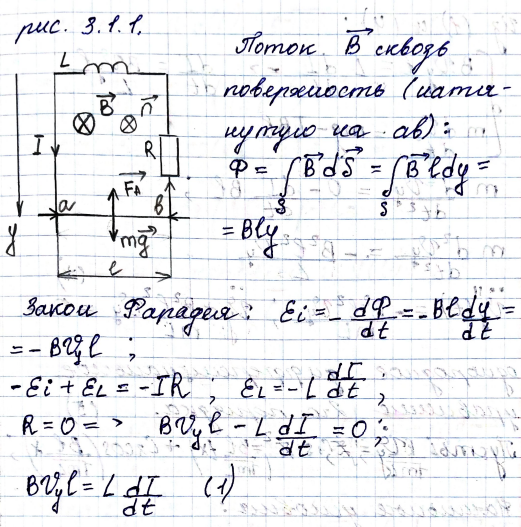 рис. 3.1.1.
L
B⃗ n⃗
I
R
F⃗A
a b
y
mg⃗
l
Поток B⃗ сквозь
поверхность (натя-
нутую на ab):
Φ = ∫ B⃗ dS⃗ = ∫ B⃗ l dy =
S S
= Bly
Закон Фарадея: Ei = - dΦ/dt = -Bl dy/dt =
= - BVyl ;
-Ei + EL = -IR ; EL = -L dI/dt ;
R = 0 => BVyl - L dI/dt = 0 ;
BVyl = L dI/dt (1)